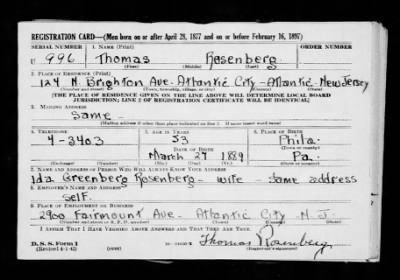 REGISTRATION CARD—(Men born on or after April 28, 1877 and on or before February 16, 1897)
SERIAL NUMBER 1. NAME (Print) ORDER NUMBER
U 996 Thomas Rosenberg
(First) (Middle) (Last)
2. PLACE OF RESIDENCE (Print)
124 N. Brighton Ave. Atlantic City - Atlantic - New Jersey
(Number and street) (Town, township, village, or city) (County) (State)
[THE PLACE OF RESIDENCE GIVEN ON THE LINE ABOVE WILL DETERMINE LOCAL BOARD
JURISDICTION; LINE 2 OF REGISTRATION CERTIFICATE WILL BE IDENTICAL]
3. MAILING ADDRESS
Same
[Mailing address if other than place indicated on line 2. If same insert word same]
4. TELEPHONE 5. AGE IN YEARS 6. PLACE OF BIRTH
4-3403 53 Phila.
DATE OF BIRTH (Town or county)
March 27 1889 Pa.
(Exchange) (Number) (Mo.) (Day) (Yr.) (State or country)
7. NAME AND ADDRESS OF PERSON WHO WILL ALWAYS KNOW YOUR ADDRESS
Ida Greenberg Rosenberg - wife - same address
8. EMPLOYER'S NAME AND ADDRESS
Self.
9. PLACE OF EMPLOYMENT OR BUSINESS
2900 Fairmount Ave - Atlantic City - N. J.
(Number and street or R. F. D. number) (Town) (County) (State)
I AFFIRM THAT I HAVE VERIFIED ABOVE ANSWERS AND THAT THEY ARE TRUE.
D. S. S. Form 1
(Revised 4-1-42) Thomas Rosenberg